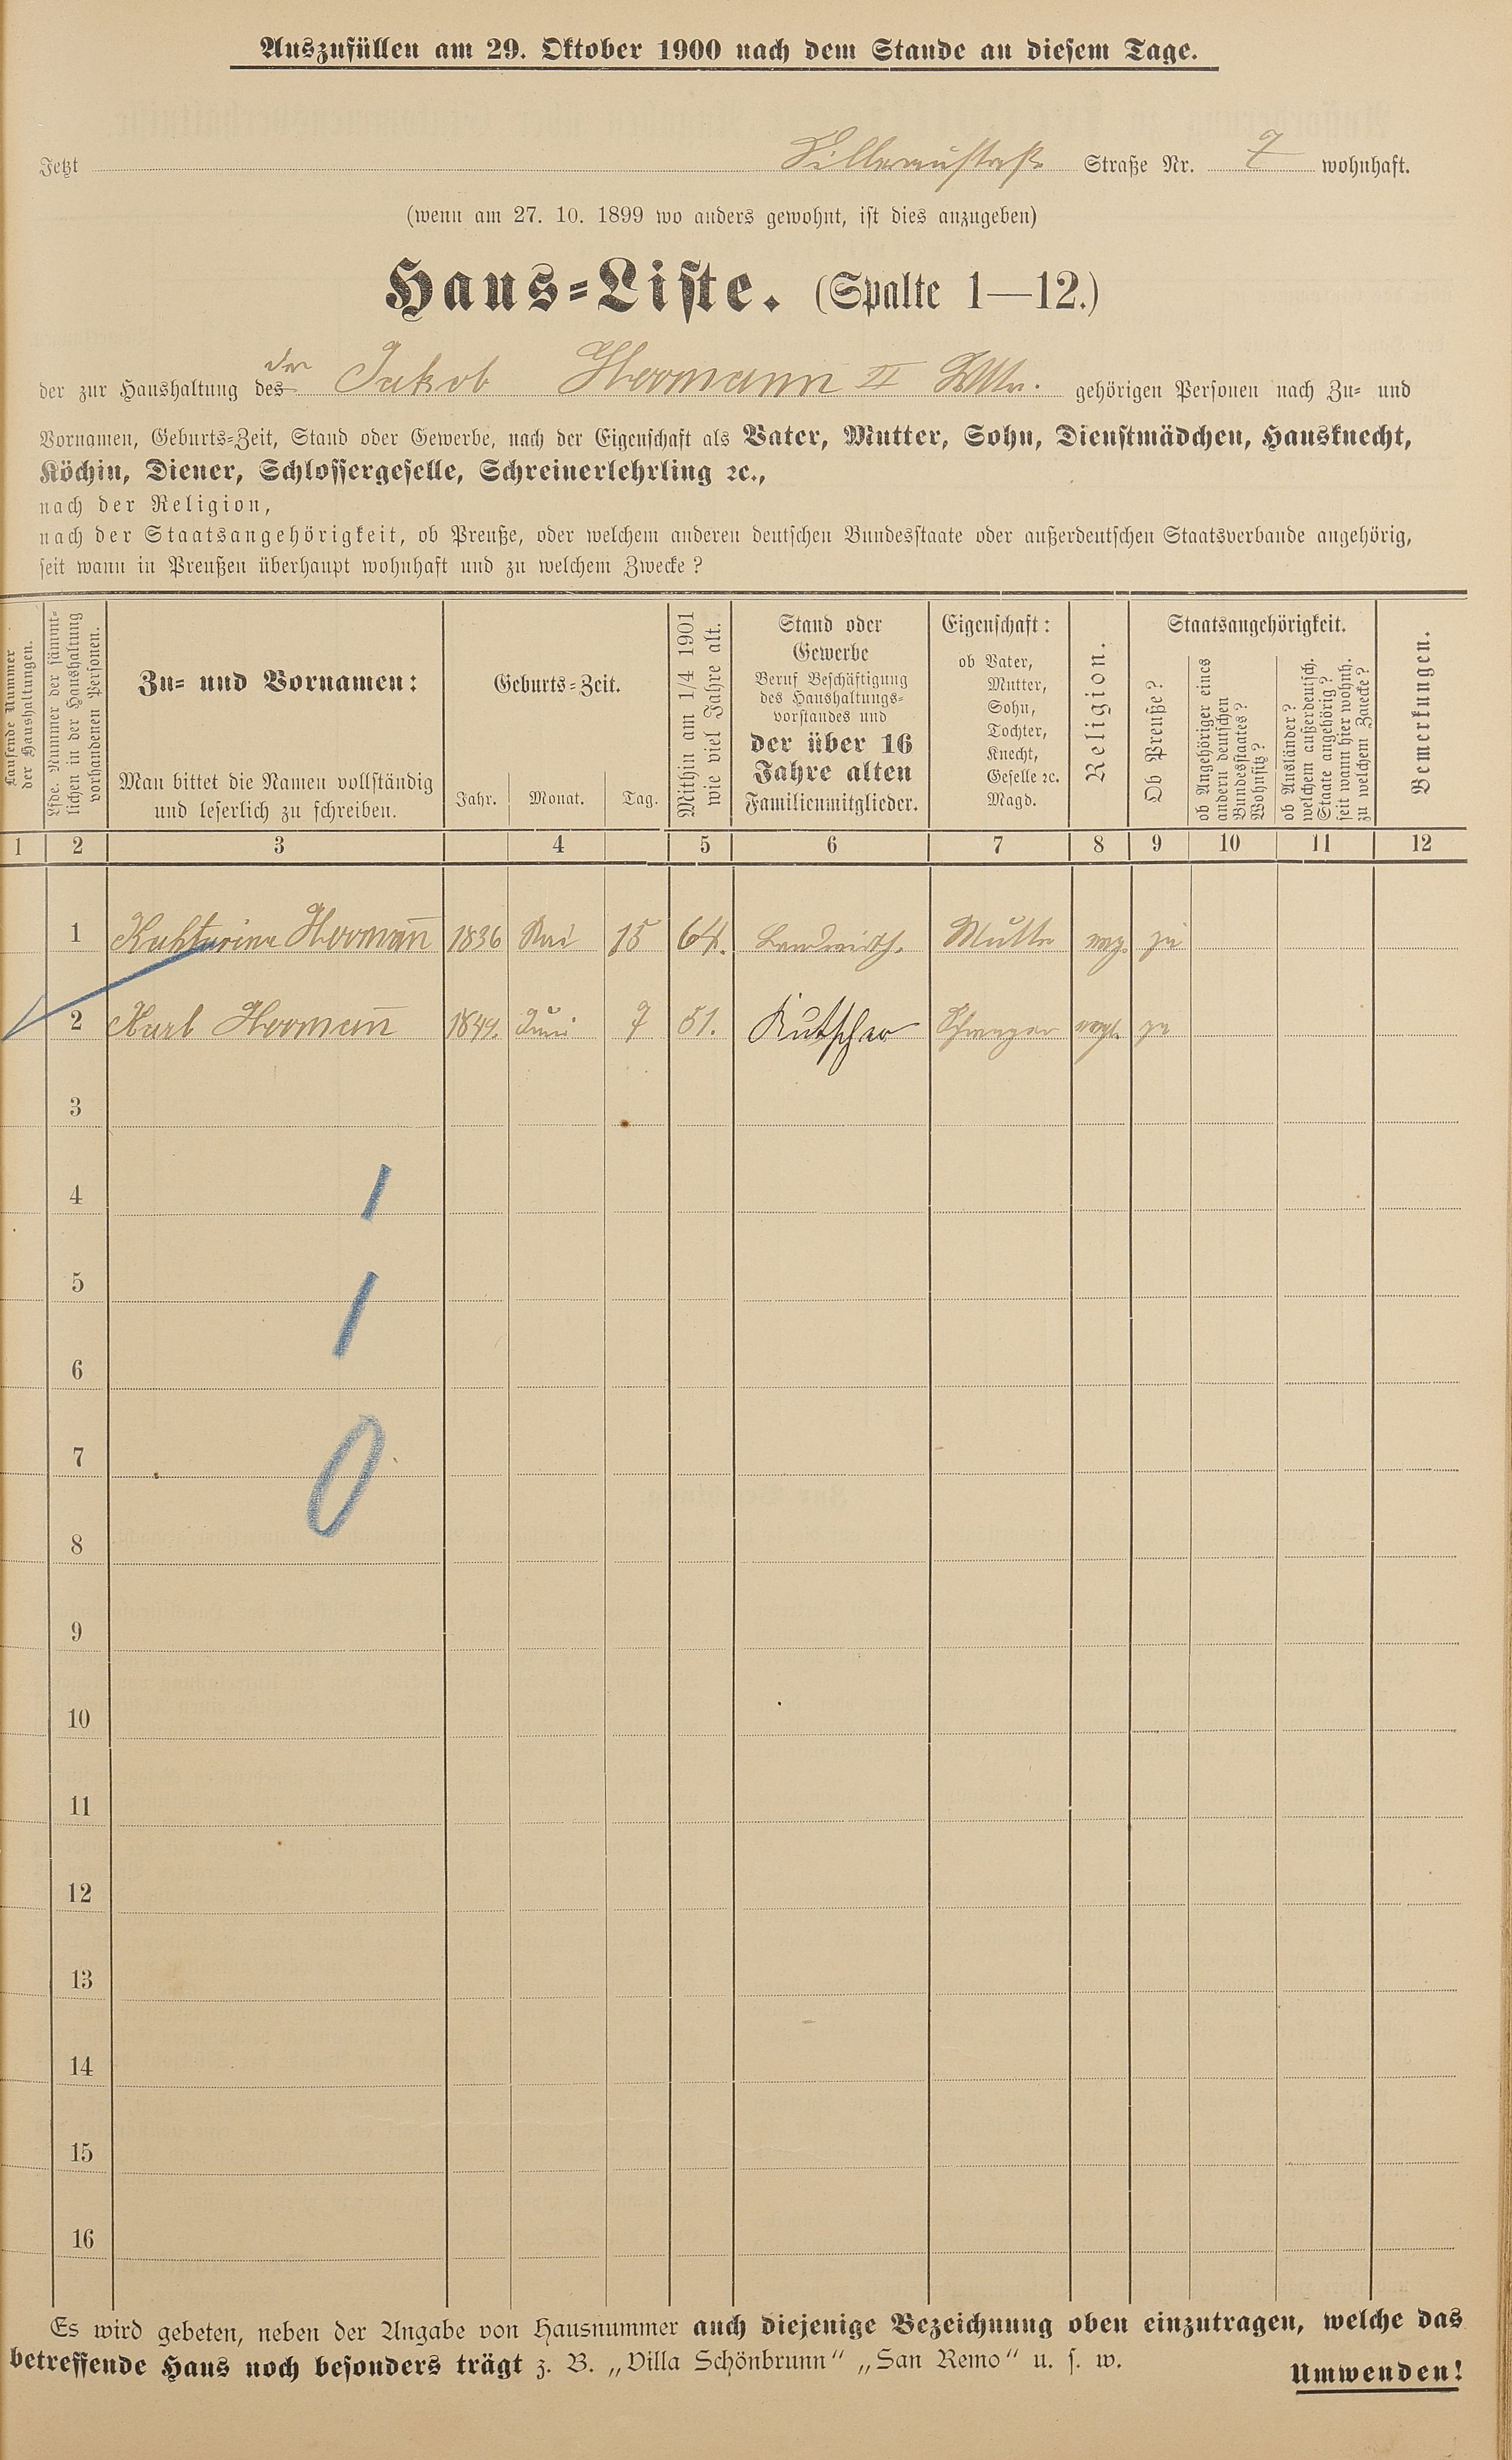 Auszufüllen am 29. Oktober 1900 nach dem Stande an diesem Tage.
Jetzt Straße Nr. 7 wohnhaft.
(wenn am 27. 10. 1899 wo anders gewohnt, ist dies anzugeben)
Haus-Liste. (Spalte 1—12.)
der
der zur Haushaltung des Jakob Hermann II Wttw. gehörigen Personen nach Zu- und
Vornamen, Geburts-Zeit, Stand oder Gewerbe, nach der Eigenschaft als Vater, Mutter, Sohn, Dienstmädchen, Hausknecht,
Köchin, Diener, Schlossergeselle, Schreinerlehrling ꝛc.,
nach der Religion,
nach der Staatsangehörigkeit, ob Preuße, oder welchem anderen deutschen Bundesstaate oder außerdeutschen Staatsverbande angehörig,
seit wann in Preußen überhaupt wohnhaft und zu welchem Zwecke?
Laufende Nummer
der Haushaltungen.
Lfde. Nummer der sämmt-
lichen in der Haushaltung
vorhandenen Personen.
Zu- und Vornamen:
Man bittet die Namen vollständig
und leserlich zu schreiben.
Geburts-Zeit.
Jahr. Monat. Tag.
Mithin am 1/4 1901
wie viel Jahre alt.
Stand oder
Gewerbe
Beruf Beschäftigung
des Haushaltungs-
vorstandes und
der über 16
Jahre alten
Familienmitglieder.
Eigenschaft:
ob Vater,
Mutter,
Sohn,
Tochter,
Knecht,
Geselle ꝛc.
Magd.
Religion.
Staatsangehörigkeit.
Ob Preuße?
ob Angehöriger eines
andern deutschen
Bundesstaates?
Wohnsitz?
ob Ausländer?
welchem außerdeutsch.
Staate angehörig?
seit wann hier wohnh.
zu welchem Zwecke?
Bemerkungen.
1 2 3 4 5 6 7 8 9 10 11 12
1 Kahterina Hermann 1836 Mai 15 64. Landwirth. Mutter evg. ja
2 Karl Hermann 1849. Juni 7 51. Kutscher evgl. ja
3
4
5
6
7
8
9
10
11
12
13
14
15
16
Es wird gebeten, neben der Angabe von Hausnummer auch diejenige Bezeichnung oben einzutragen, welche das
betreffende Haus noch besonders trägt z. B. „Villa Schönbrunn“ „San Remo“ u. s. w.
Umwenden!